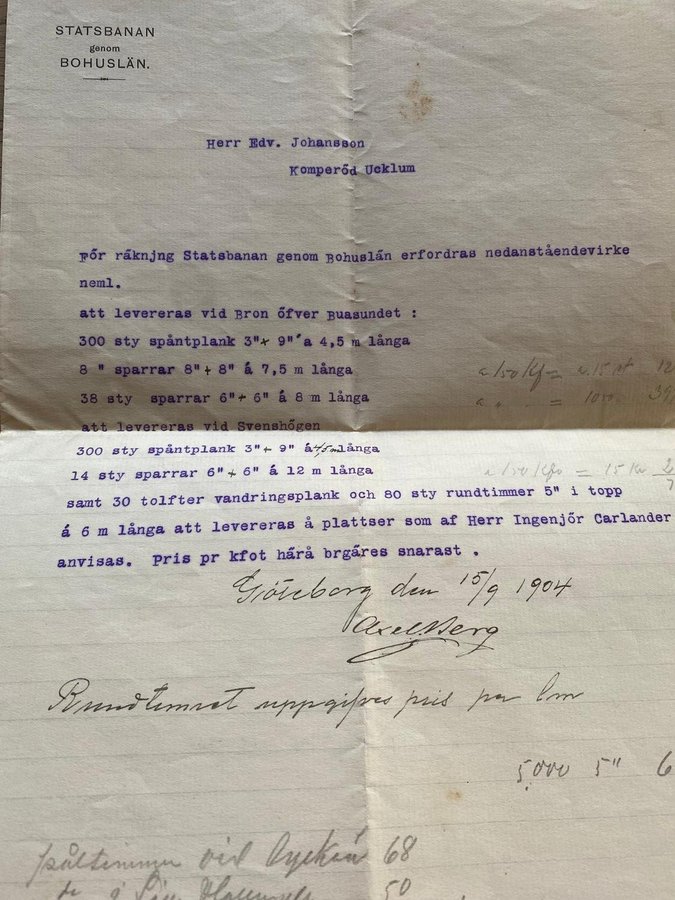 STATSBANAN
genom
BOHUSLÄN.
Herr Edv. Johansson
Komperöd Ucklum
För räknjng Statsbanan genom Bohuslän erfordras nedanståendevirke
neml.
att levereras vid Bron öfver Buasundet :
300 sty spåntplank 3"+ 9" a 4,5 m långa
8 " sparrar 8"+ 8" á 7,5 m långa
38 sty sparrar 6"+ 6" á 8 m långa
att levereras vid Svenshögen
300 sty spåntplank 3"+ 9" á 4,5 m långa
14 sty sparrar 6"+ 6" á 12 m långa
samt 30 tolfter vandringsplank och 80 sty rundtimmer 5" i topp
á 6 m långa att levereras å plattser som af Herr Ingenjör Carlander
anvisas. Pris pr kfot härå brgäres snarast .
Göteborg den 15/9 1904
Axel Berg
Rundtimret uppgifves pris per lm
5,000 5" 6
påltimmer vid 68
50